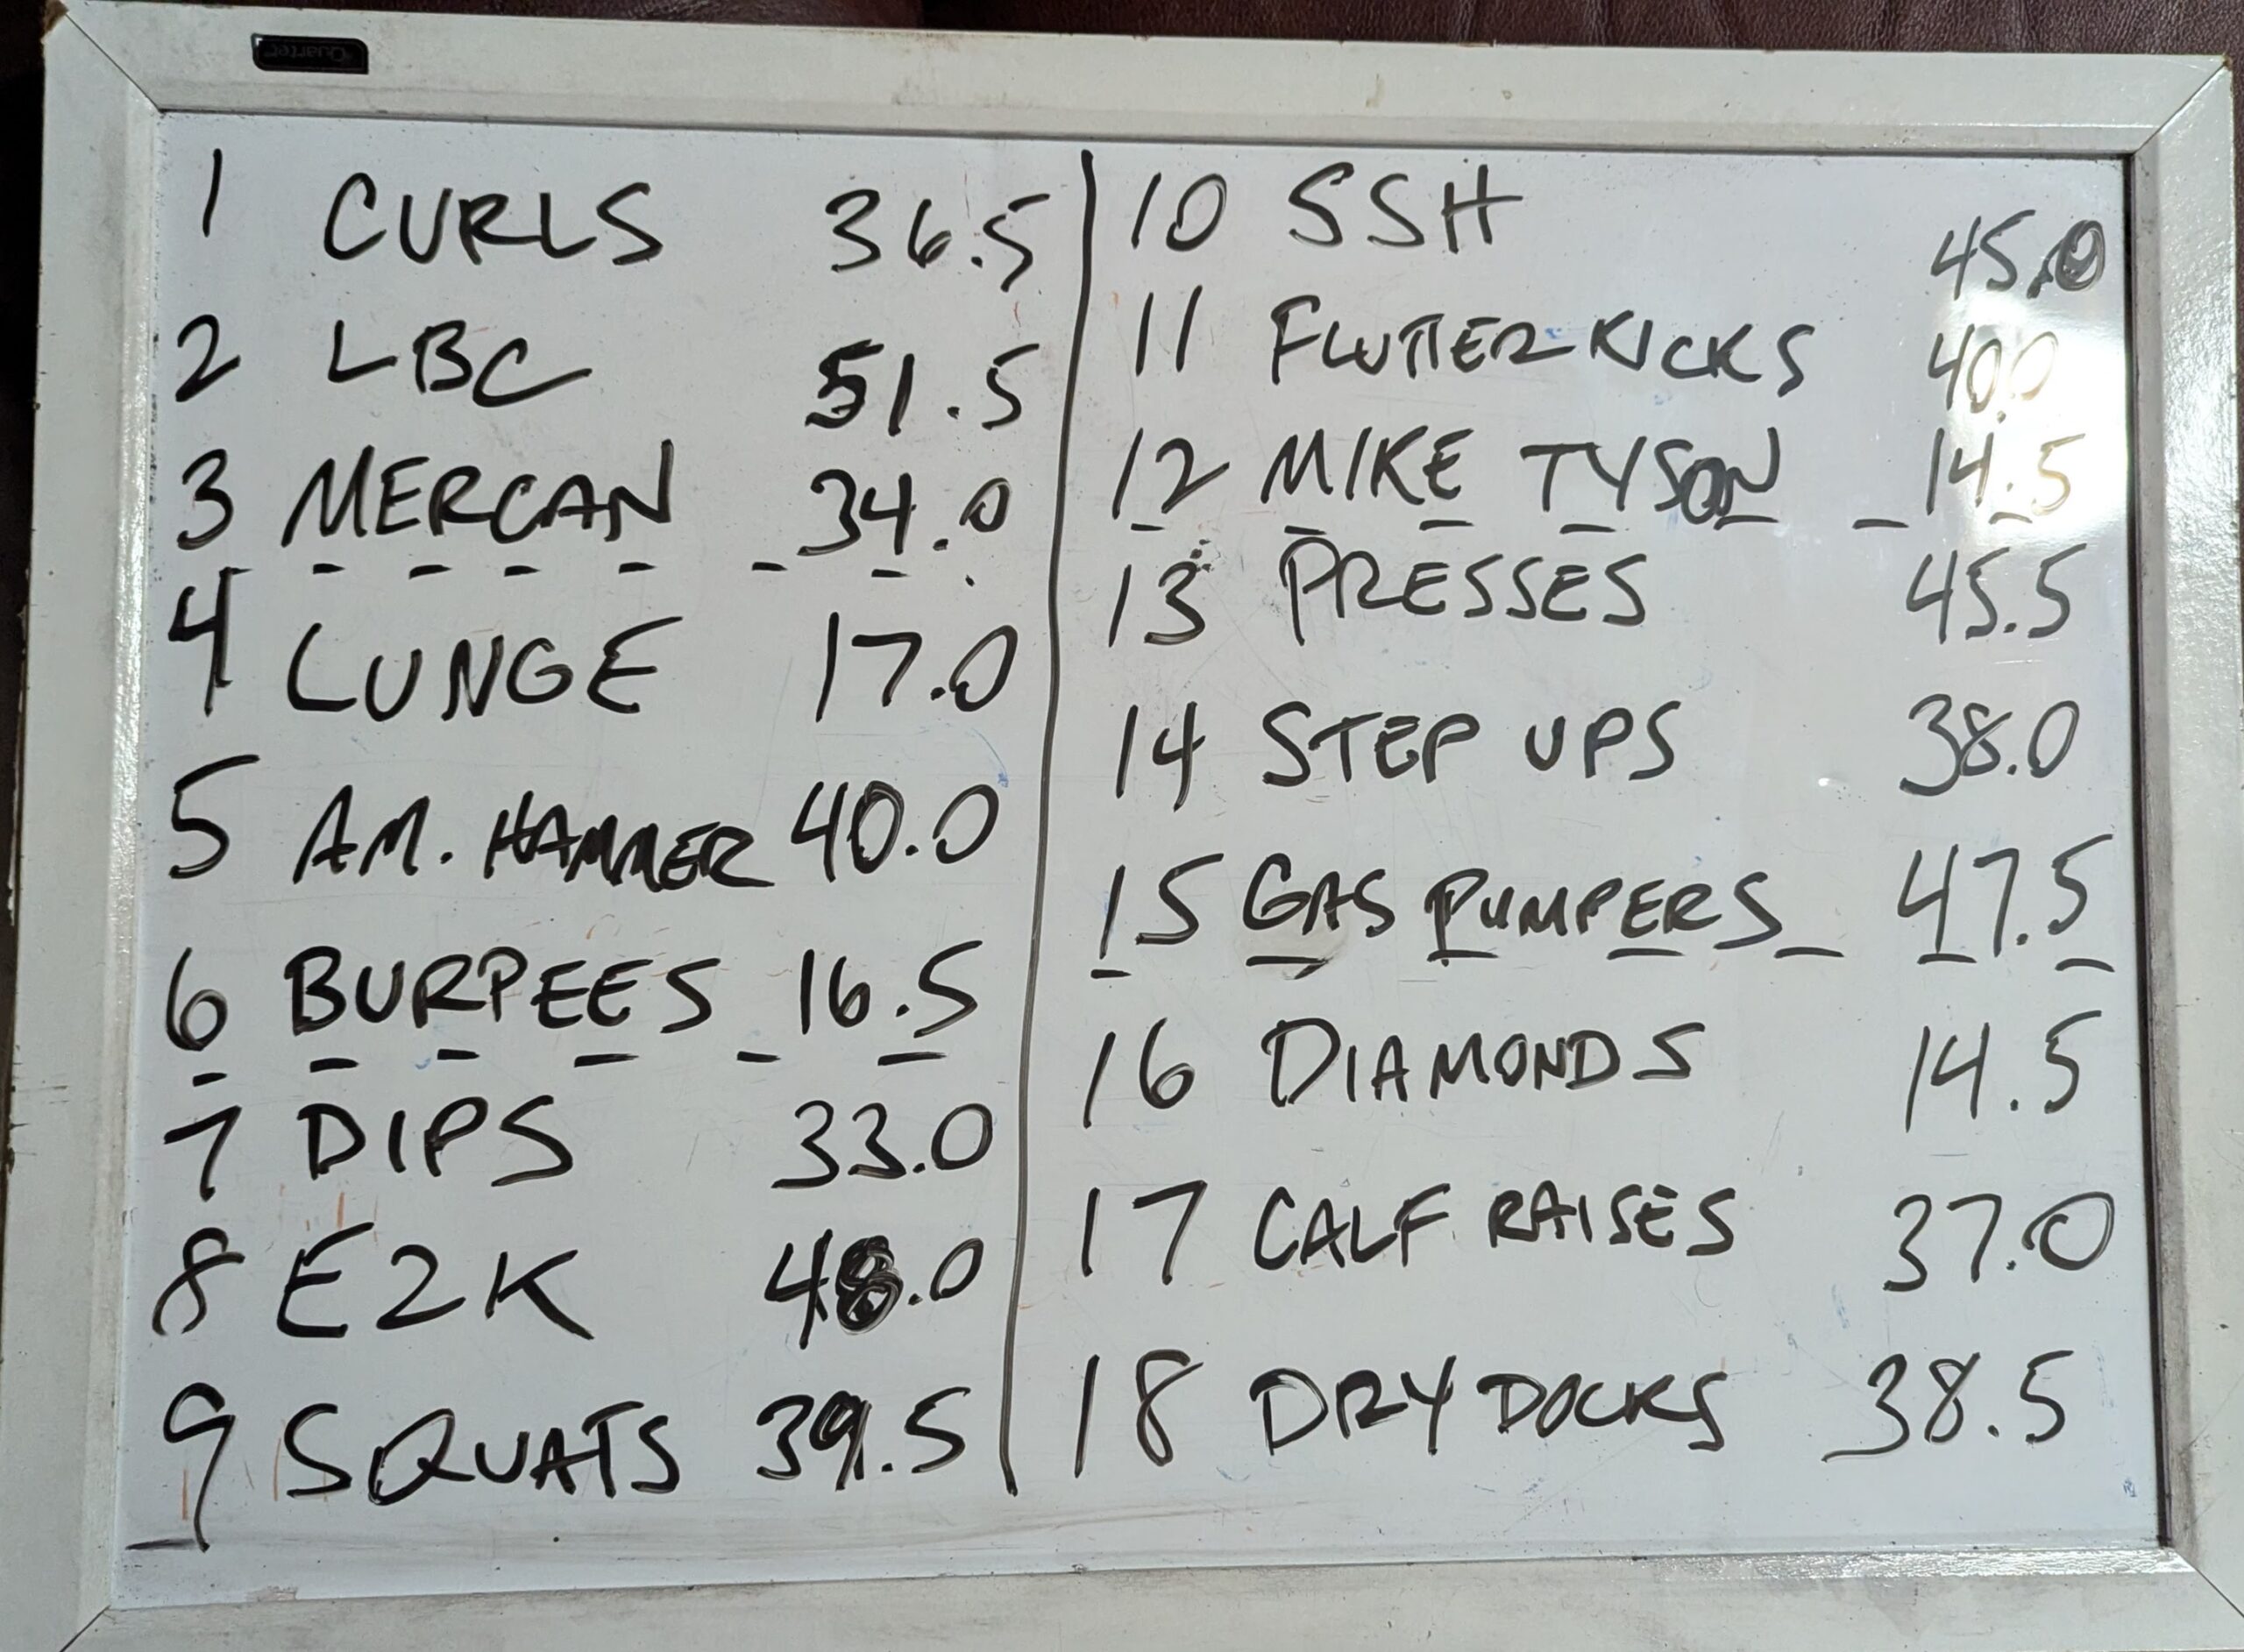 Quartet
1 CURLS 36.5
2 LBC 51.5
3 MERCAN 34.0
4 LUNGE 17.0
5 AM. HAMMER 40.0
6 BURPEES 16.5
7 DIPS 33.0
8 E2K 48.0
9 SQUATS 39.5
10 SSH 45.0
11 FLUTTER KICKS 40.0
12 MIKE TYSON 14.5
13 PRESSES 45.5
14 STEP UPS 38.0
15 GAS PUMPERS 47.5
16 DIAMONDS 14.5
17 CALF RAISES 37.0
18 DRY DOCKS 38.5